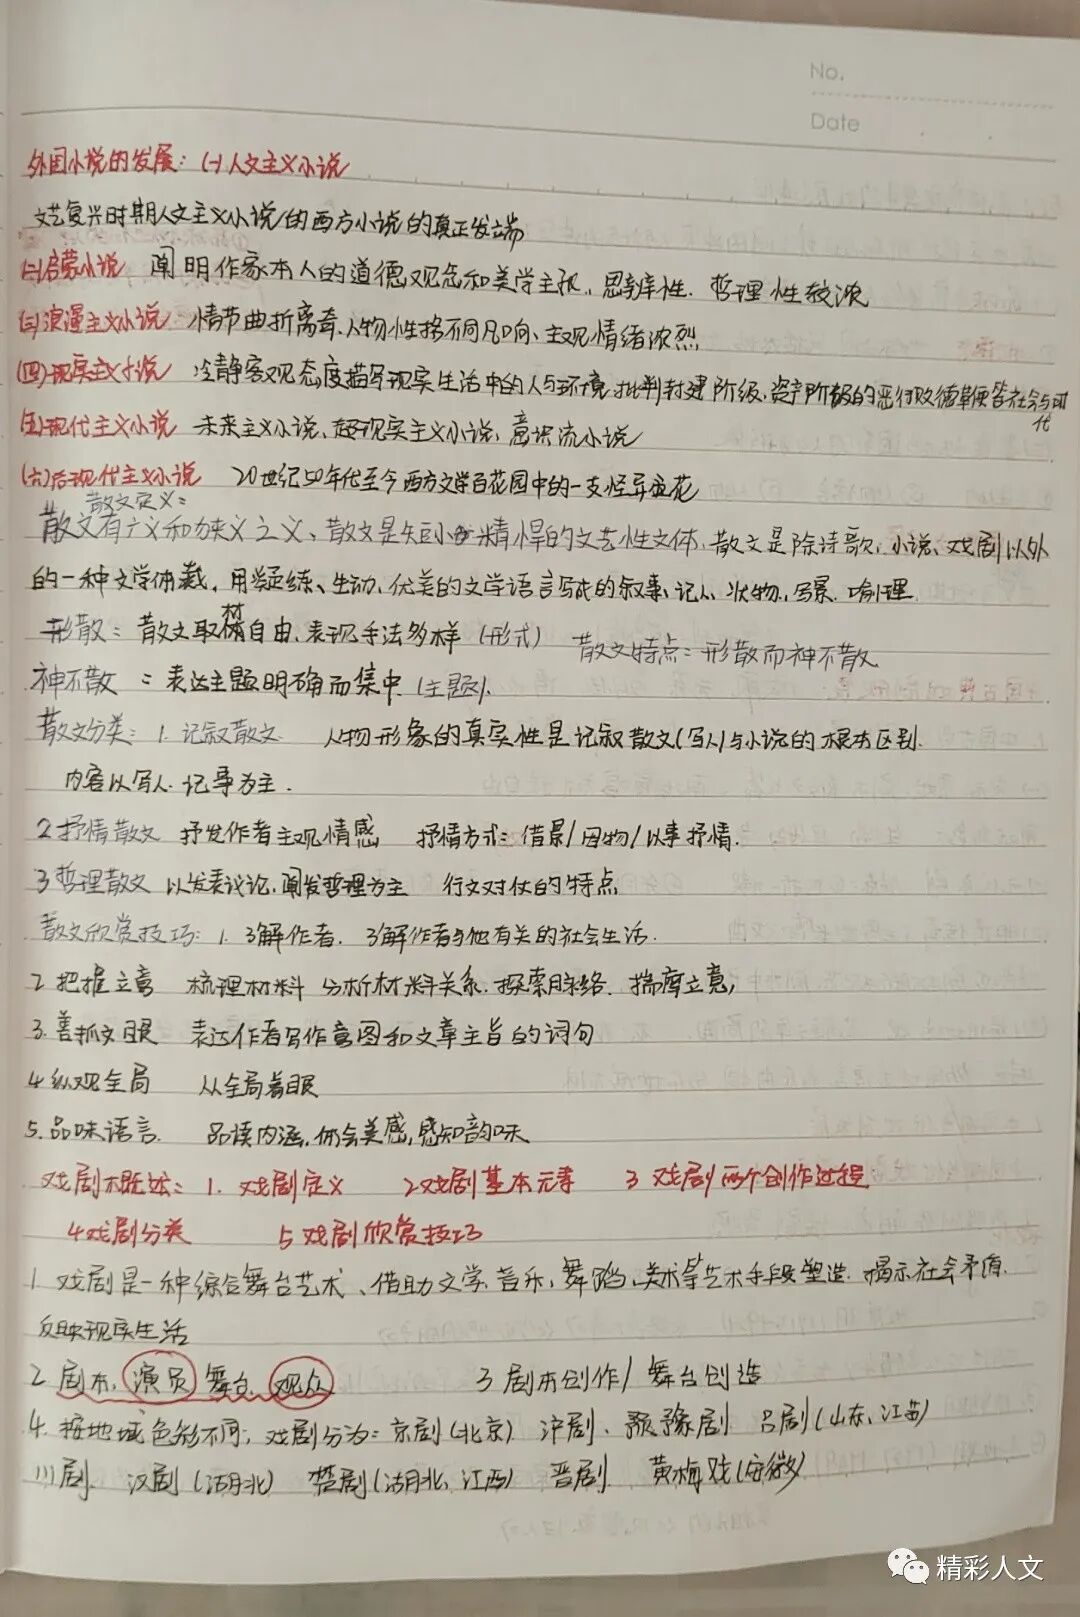 No.
Date
外国小说的发展：(一)人文主义小说
文艺复兴时期人文主义小说的西方小说的真正发端
(二)启蒙小说 阐明作家本人的道德观念和美学主张，思辨性、哲理性较浓
(三)浪漫主义小说 情节曲折离奇、人物性格不同凡响、主观情绪浓烈
(四)现实主义小说 冷静客观态度描写现实生活中的人与环境，批判封建阶级、资产阶级的恶行败德鞭笞社会与时代
(五)现代主义小说 未来主义小说、超现实主义小说、意识流小说
(六)后现代主义小说 20世纪50年代至今西方文学百花园中的一支怪异
散文定义：
散文有广义和狭义之义、散文是短小精悍的文艺性文体，散文是除诗歌、小说、戏剧以外
的一种文学体裁，用凝练、生动、优美的文学语言写成的叙事、记人、状物、写景、喻理
形散：散文取材自由、表现手法多样 (形式) 散文特点：形散而神不散
神不散：表达主题明确而集中 (主题)
散文分类：1. 记叙散文 人物形象的真实性是记叙散文(写人)与小说的根本区别
内容以写人、记事为主.
2 抒情散文 抒发作者主观情感 抒情方式：借景/因物/以事抒情.
3 哲理散文 以发表议论，阐发哲理为主 行文对仗的特点
散文欣赏技巧：1. 了解作者. 了解作者与他有关的社会生活.
2 把握立意 梳理材料 分析材料关系、探索脉络、揣摩立意，
3. 善抓文眼 表达作者写作意图和文章主旨的词句
4 纵观全局 从全局着眼
5. 品味语言. 品读内涵，体会美感，感知韵味
戏剧概述：1. 戏剧定义 2戏剧基本元素 3 戏剧两个创作过程
4戏剧分类 5 戏剧欣赏技巧
1. 戏剧是一种综合舞台艺术、借助文学、音乐、舞蹈、美术等艺术手段塑造、揭示社会矛盾、
反映现实生活
2 剧本、演员 舞台、观众 3 剧本创作/舞台创造
4. 按地域色彩不同，戏剧分为：京剧(北京) 沪剧、豫剧 吕剧(山东、江苏)
川剧 汉剧(湖北) 楚剧(湖北、江西) 晋剧 黄梅戏(安徽)
精彩人文